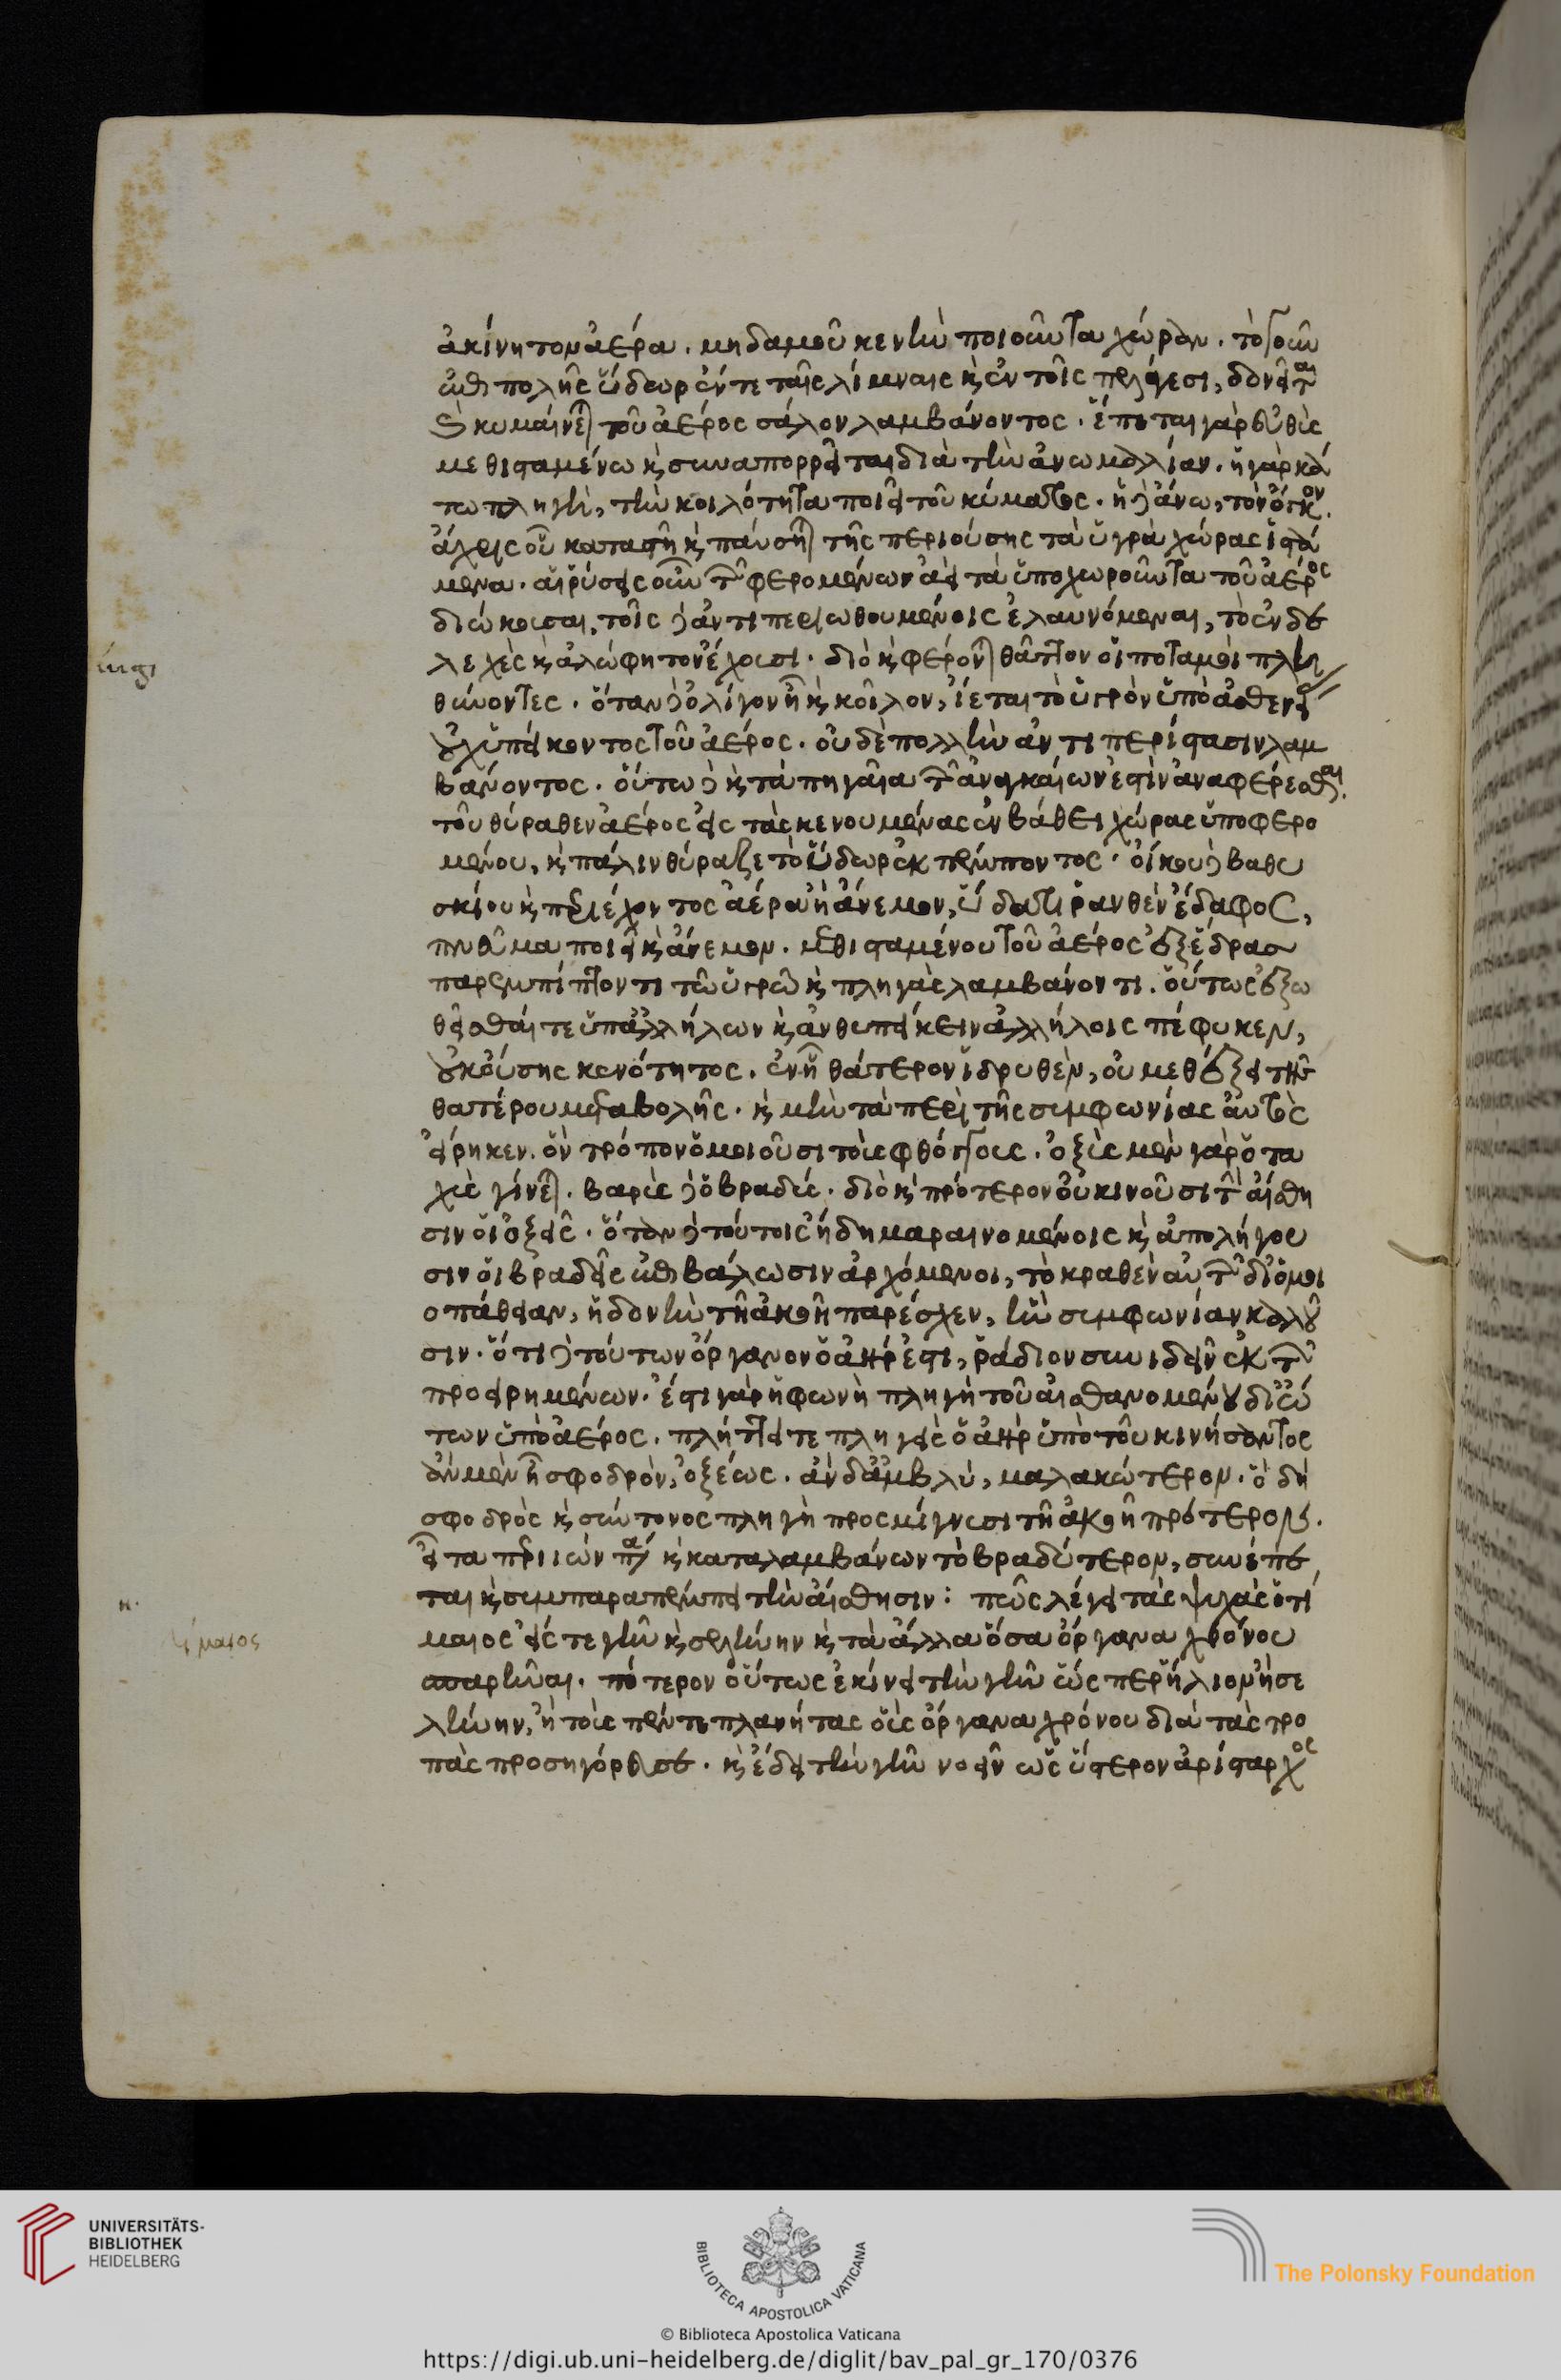 ἀκίνητον ἀέρα. μηδαμοῦ κενὴν ποιοῦντα χώραν. τὸ γοῦν
ἐπιπολῆς ὕδωρ ἔν τε ταῖς λίμναις κ̀ ἐν τοῖς πελάγεσι, δονεῖται
κ̀ κυμαίνεται τοῦ ἀέρος σάλον λαμβάνοντος. ἕπεται γὰρ εὐθὺς
μεθισταμένω κ̀ συναπορρεῖ ται διὰ τὴν ἀνωμαλίαν. ἡ γὰρ κά
τω πληγὴ, τὴν κοιλότητα ποιεῖ τοῦ κύματος. ἡ δὲ ἄνω, τὸν ὄγκον.
ἄχρις οὗ καταστῆ κ̀ παύσηται τῆς περιούσης τὰ ὑγρὰ χώρας ἱστά
μενα. αἱ ῥύσεις οὖν τῶν φερομένων ἀεὶ τὰ ὑποχωροῦντα τοῦ ἀέρος
διώκουσαι, τοῖς δὲ ἀντιπεριωθουμένοις ἐλαυνόμεναι, τὸ ἐνδε
λεχὲς κ̀ ἀλώφητον ἔχουσι. διὸ κ̀ φέρονται θᾶττον οἱ ποταμοὶ πλη
θύνοντες. ὅταν δὲ ὀλίγον ἦ κ̀ κοῖλον, ἵεται τὸ ὑγρὸν ὑπὸ ἀσθενεί
οὐχ ὑπείκοντος τοῦ ἀέρος. οὐδὲ πολλὴν ἀντιπερίστασιν λαμ
βάνοντος. οὕτω δὲ κ̀ τὰ πηγαῖα τῶν ἀναγκαίων ἐστὶν ἀναφέρεσθαι.
τοῦ θύραθεν ἀέρος εἰς τὰς κενουμένας ἐν βάθει χώρας ὑποφερο
μένου, κ̀ πάλιν θύραζε τὸ ὕδωρ ἐκπέμποντος. οἴκου δὲ βαθυ
σκίου κ̀ περιέχοντος ἀέρα νήνεμον, ὕδατι ῥανθὲν ἔδαφος,
πνεῦμα ποιεῖ κ̀ ἄνεμον. μεθισταμένου τοῦ ἀέρος ἐξ ἕδρας
παρεμπίπτοντι τῶ ὑγρῶ κ̀ πληγὰς λαμβάνοντι. οὕτως ἐξω
θεῖσθαί τε ὑπ' ἀλλήλων κ̀ ἀνθυπείκειν ἀλλήλοις πέφυκεν,
οὐκ οὔσης κενότητος. ἐν ἧ θάτερον ἱδρυθὲν, οὐ μεθέξει τῆς
θατέρου μεταβολῆς. κ̀ μὴν τὰ περὶ τῆς συμφωνίας αὐτὸς
εἴρηκεν. ὃν τρόπον ὁμοιοῦσι τοὶς φθόγγους. ὀξὺς μὲν γὰρ ὁ τα
χὺς γίνεται. βαρὺς δὲ ὁ βραδύς. διὸ κ̀ πρότερον οὐ κινοῦσι τὴν αἴσθη
σιν οἱ ὀξεῖς. ὅταν δὲ τούτοις ἤδη μαραινομένοις κ̀ ἀπολήγου
σιν οἱ βραδεῖς ἐπιβάλωσιν ἀρχόμενοι, τὸ κραθὲν αὐτῶν δι' ὁμοι
οπάθειαν, ἡδονὴν τῆ ἀκοῆ παρέσχεν, ἣν συμφωνίαν καλοῦ
σιν. ὅτι δὲ τούτων ὄργανον ὁ ἀήρ ἐστι, ῥάδιον συνιδεῖν ἐκ τῶν
προειρημένων. ἔστι γὰρ ἡ φωνὴ πληγὴ τοῦ αἰσθανομένου δι' ὤ
των ὑπὸ ἀέρος. πλήττει τε πληγεὶς ὁ ἀὴρ ὑπὸ τοῦ κινήσαντος
ἂν μὲν ἦ σφοδρὸν, ὀξέως. ἂν δ' ἀμβλὺ, μαλακώτερον. ὁ δὴ
σφοδρὸς κ̀ σύντονος πληγὴ προσμίγνυσι τῆ ἀκοῆ πρότερος.
εἶτα περιιὼν πά κ̀ καταλαμβάνων τὸ βραδύτερον, συνέπε
ται κ̀ συμπαραπέμπει τὴν αἴσθησιν: πῶς λέγει τὰς ψυχὰς ὁ τί
μαιος εἴς τε γῆν κ̀ σελήνην κ̀ τὰ ἄλλα ὅσα ὄργανα χρόνου
σπαρῆναι. πότερον οὕτως ἐκίνει τὴν γῆν ὥς περ ἥλιον ἢ σε
λήνην, ἢ τοὶς πέντε πλανήτας οἳς ὄργανα χρόνου διὰ τὰς τρο
πὰς προσηγόρευσε. κ̀ ἔδει τὴν γῆν νοεῖν ὡς ὕστερον ἀρίσταρχος
τίμαιος
UNIVERSITÄTS-
BIBLIOTHEK
HEIDELBERG
BIBLIOTECA APOSTOLICA VATICANA
© Biblioteca Apostolica Vaticana
The Polonsky Foundation
https://digi.ub.uni-heidelberg.de/diglit/bav_pal_gr_170/0376